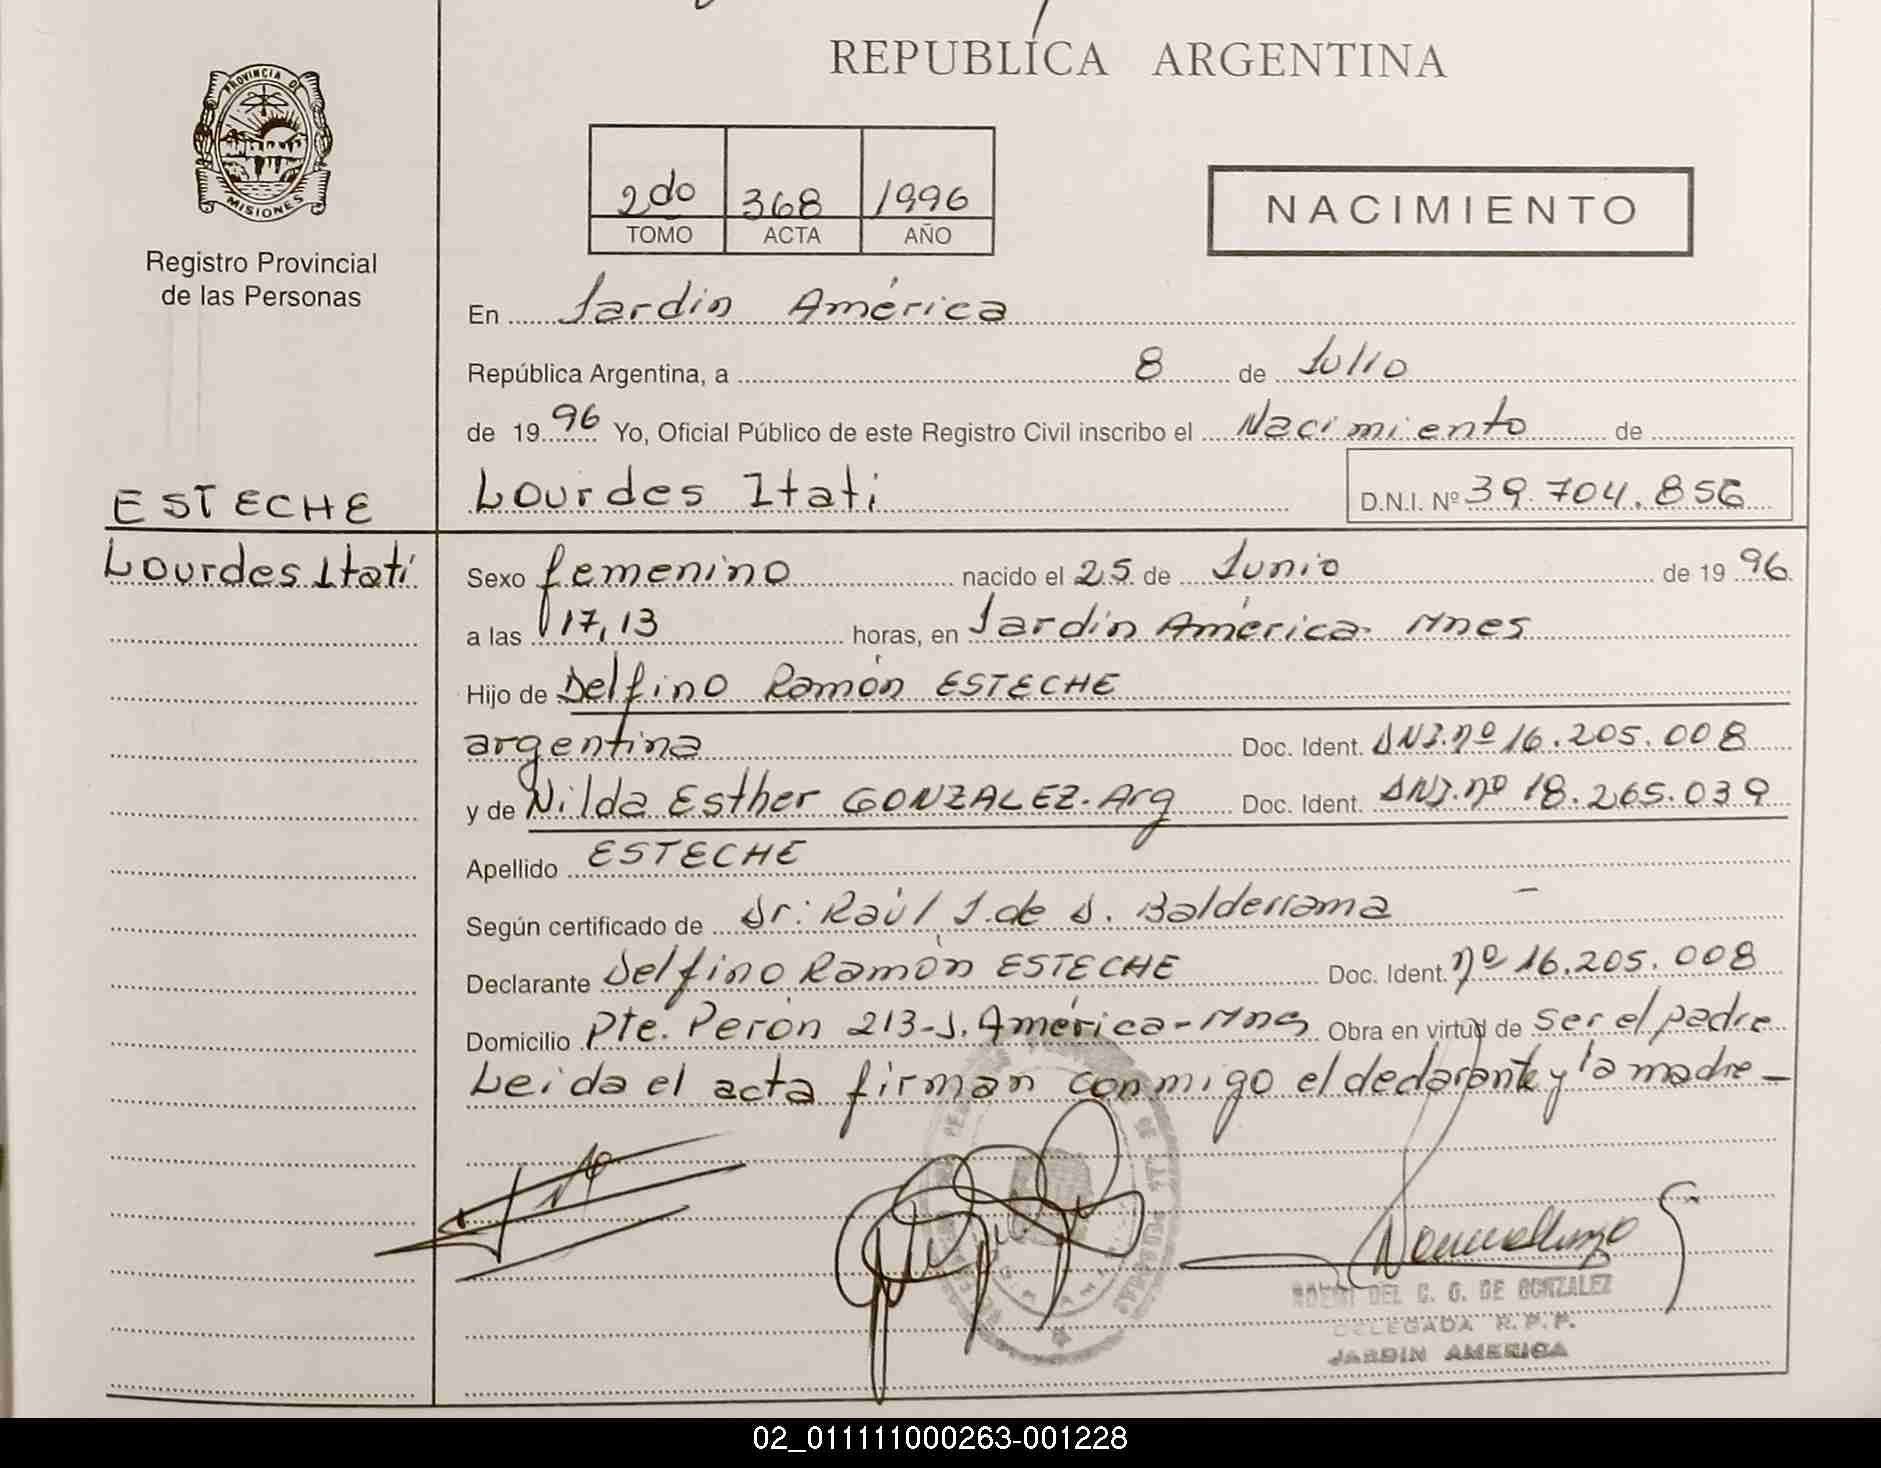 REPUBLICA ARGENTINA
PROVINCIA DE
MISIONES
Registro Provincial
de las Personas
2do 368 1996
TOMO ACTA AÑO
NACIMIENTO
En Jardin América
República Argentina, a 8 de Julio
de 1996 Yo, Oficial Público de este Registro Civil inscribo el Nacimiento de
Lourdes Itati D.N.I. Nº 39.704.856
ESTECHE
Lourdes Itatí
Sexo femenino nacido el 25 de Junio de 1996
a las 17,13 horas, en Jardin América. Mnes
Hijo de Delfino Ramón ESTECHE
argentina Doc. Ident. DNI.nº 16.205.008
y de Nilda Esther GONZALEZ. Arg Doc. Ident. DNI.nº 18.265.039
Apellido ESTECHE
Según certificado de Dr: Raúl J. de D. Balderrama
Declarante Delfino Ramón ESTECHE Doc. Ident. nº 16.205.008
Domicilio Pte. Perón 213-J. América-Mnes Obra en virtud de ser el padre
Leida el acta firman conmigo el declarante y la madre-
DEL C. G. DE GONZALEZ
DELEGADA R.P.P.
JARDIN AMERICA
02_011111000263-001228